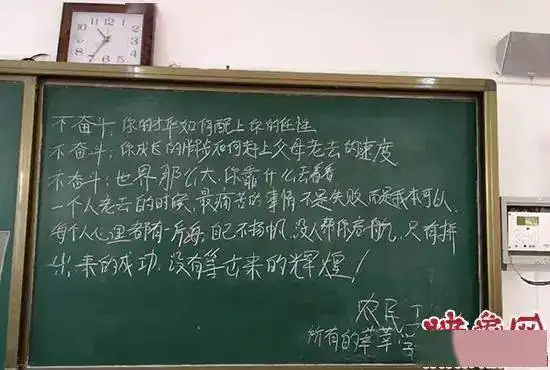 不奋斗,你的才华如何配上你的任性
不奋斗,你成长的脚步如何赶上父母老去的速度
不奋斗:世界那么大,你靠什么去看看
一个人老去的时候,最痛苦的事情不是失败,而是我本可以
每个人心理都有一片海,自己不扬帆,没人帮你启航,只有拼
出来的成功,没有等出来的辉煌!
农民工
所有的莘莘学
映象网